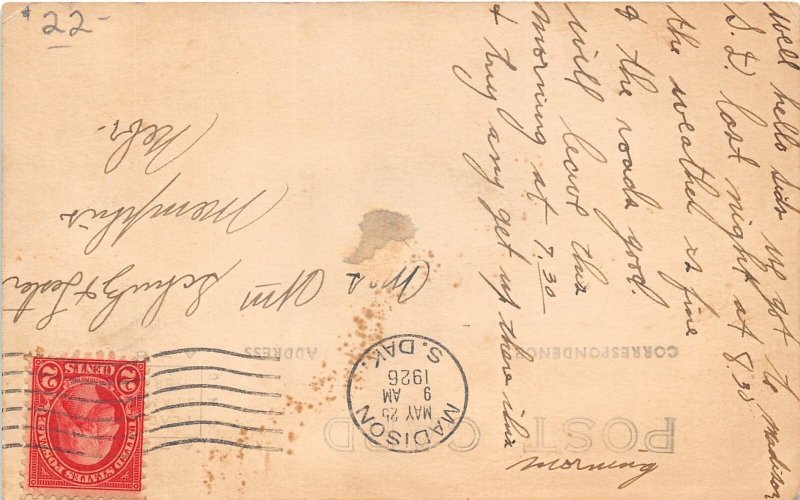 POST CARD
CORRESPONDENCE
ADDRESS
well hello sids we got to madison
S. D. last night at 8.30
the weather is fine
& the roads good.
will leave this
morning at 7.30
& try any get up there this
morning
Mrs Wm
Schulz & Lester
Memphis
Nebr.
MADISON
MAY 25
9 AM
1926
S. DAK.
UNITED STATES POSTAGE
2 CENTS 2
22-